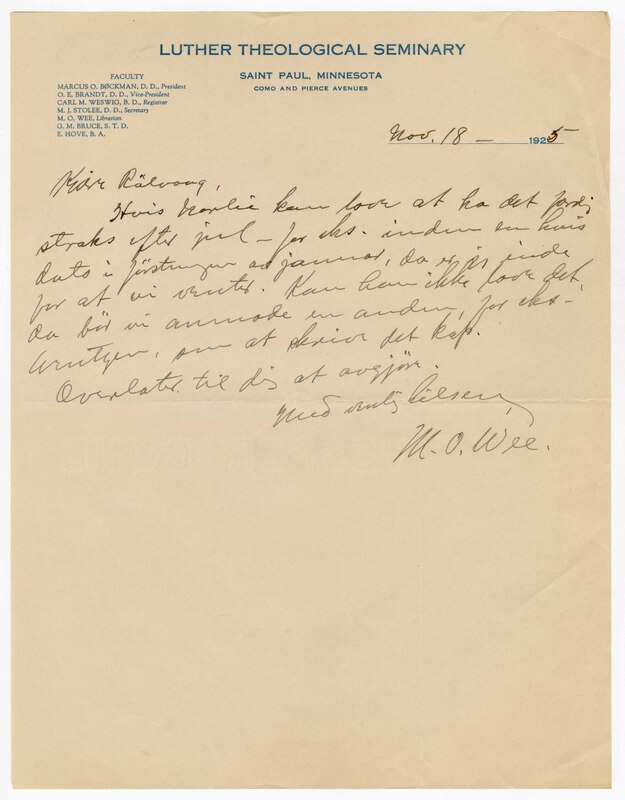 LUTHER THEOLOGICAL SEMINARY
SAINT PAUL, MINNESOTA
COMO AND PIERCE AVENUES
FACULTY
MARCUS O. BØCKMAN, D. D., President
O. E. BRANDT, D. D., Vice-President
CARL M. WESWIG, B. D., Registrar
M. J. STOLEE, D. D., Secretary
M. O. WEE, Librarian
G. M. BRUCE, S. T. D.
E. HOVE, B. A.
Nov. 18 — 1925
Kjære Rölvaag,
Hvis Norlie kan love at ha det færdig
straks efter jul — for eks. inden en hvis
dato i förstningen av januar, da er jeg inde
for at vi venter. Kan han ikke love det,
da bör vi anmode en anden, for eks.
som at skrive det kap.
Overlater til dig at avgjöre.
Med venlig hilsen,
M. O. Wee.